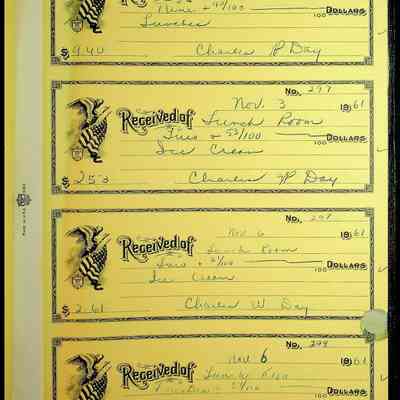 Nine + 40/100 DOLLARS
100
Lunches
$ 9.40 Charles P Day
No. 297
Nov. 3 1961
Received of Lunch Room
Two + 53/100 DOLLARS
100
Ice Cream
$ 2.53 Charles W Day
No. 298
Nov. 6 1961
Received of Lunch Room
Two + 61/100 DOLLARS
100
Ice Cream
$ 2.61 Charles W Day
No. 299
Nov. 6 1961
Received of Lunch Room
DOLLARS
100